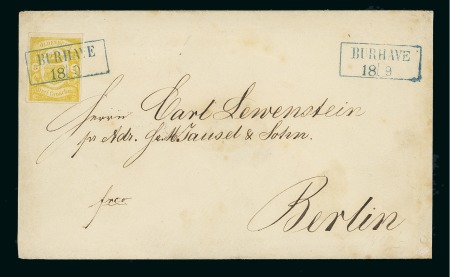 BURHAVE
18 9
BURHAVE
18 9
Herrn Carl Lewenstein
pr Adr. Tausel & Sohn.
frco
Berlin